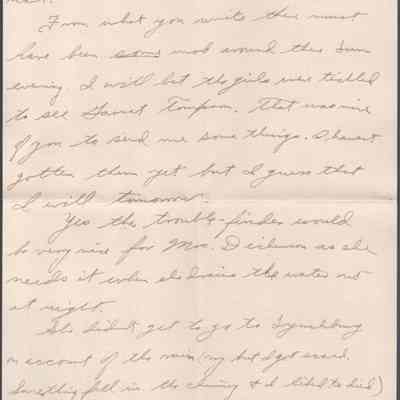 From what you write there must
have been some mob around there Sun
evening. I will bet the girls were tickled
to see Garnet Tompson. That was nice
of you to send me some things. I haven't
gotten them yet but I guess that
I will tomorrow.
Yes the trouble-finder would
be very nice for Mrs. Dickinson as she
needs it when she drains the water out
at night.
She didn't get to go to Lynchburg
on account of the rain (my but I got scared.
Something fell in the chimney & I liked to died)